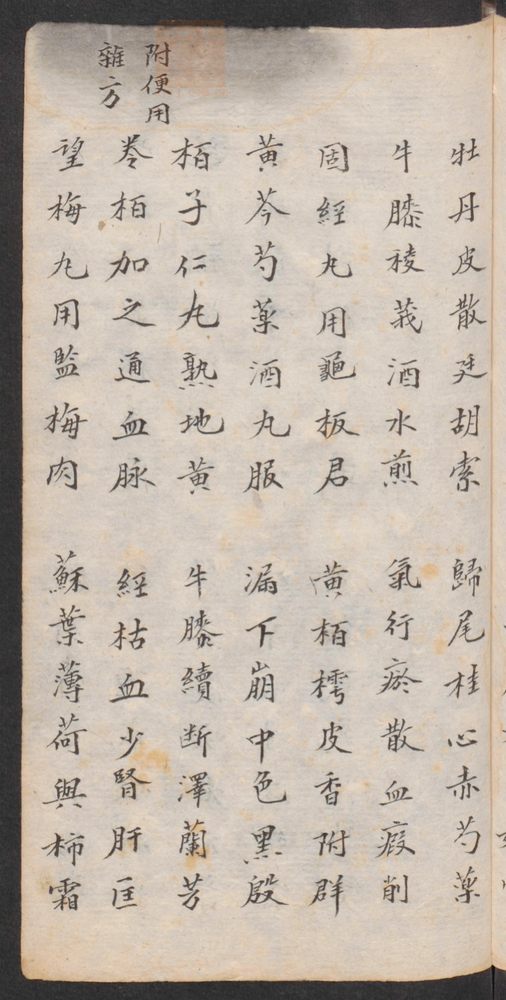 牡丹皮散延胡索　歸尾桂心赤芍藥
牛膝稜莪酒水煎　氣行瘀散血瘕削
固經丸用龜板君　黃栢樗皮香附群
黃芩芍藥酒丸服　漏下崩中色黑殷
栢子仁丸熟地黃　牛膝續断澤蘭芳
卷栢加之通血脉　經枯血少腎肝匡
附便用
雜方
望梅丸用監梅肉　蘇葉薄荷與柿霜